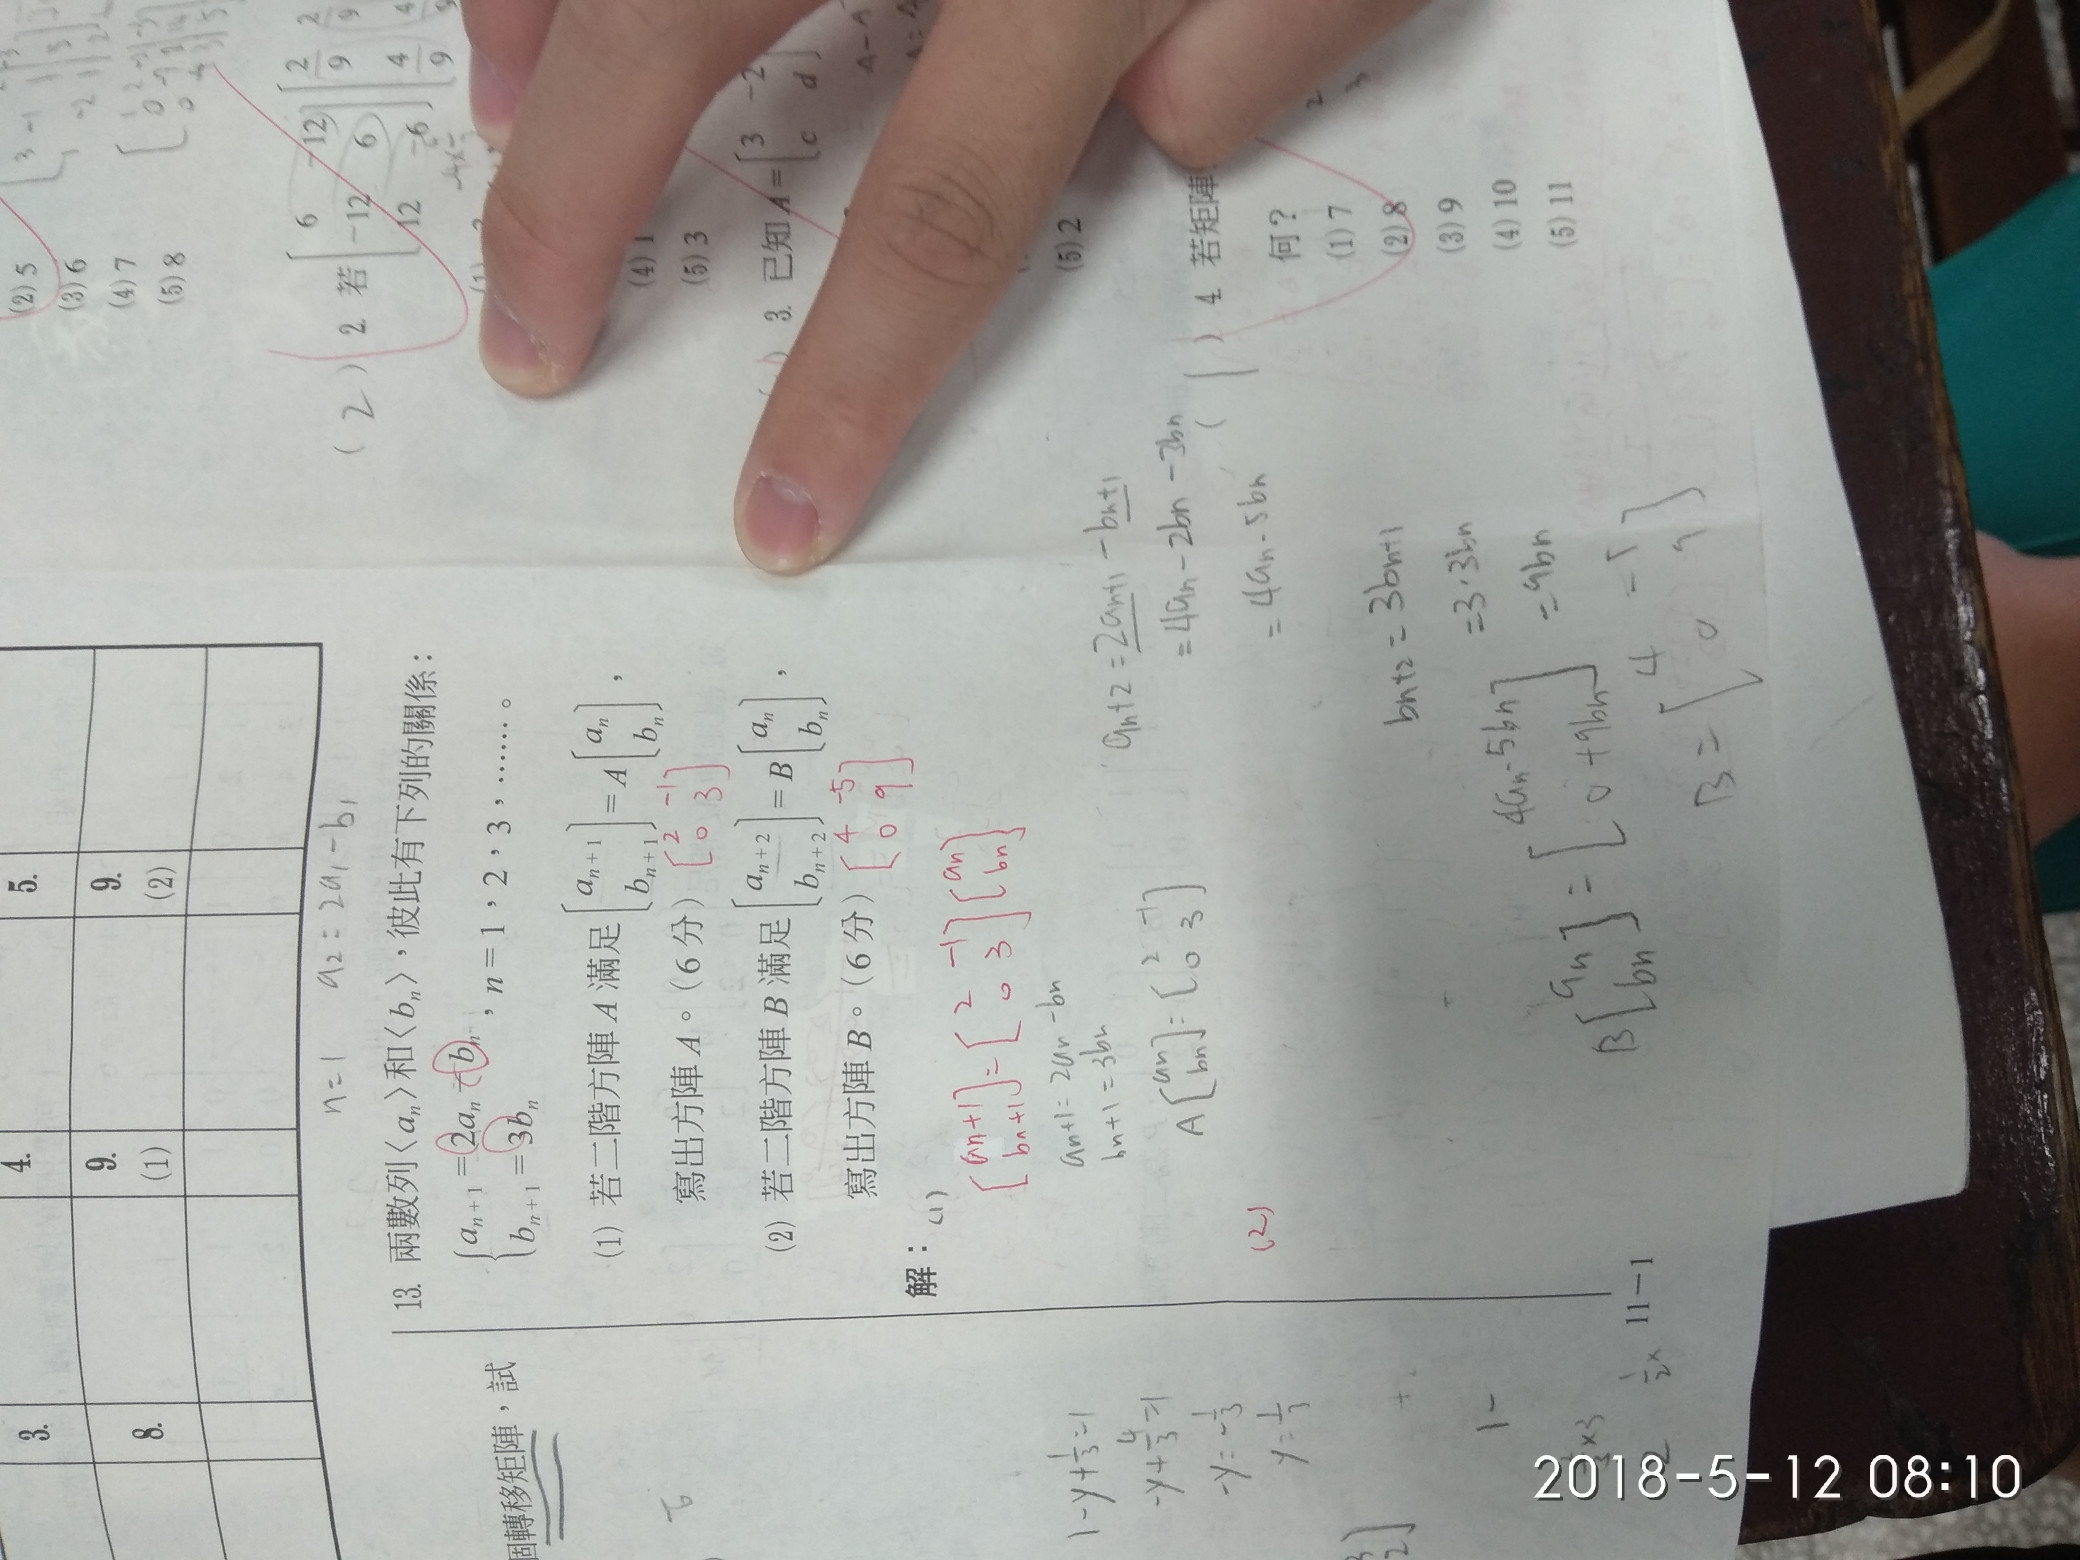 3. 4. 5.
8. 9. 9.
(1) (2)
n=1 a₂=2a₁-b₁
13. 兩數列⟨aₙ⟩和⟨bₙ⟩,彼此有下列的關係:
{aₙ₊₁=2aₙ-bₙ
bₙ₊₁=3bₙ , n=1,2,3,……。
(1) 若二階方陣 A 滿足 [aₙ₊₁ bₙ₊₁] = A [aₙ bₙ],
寫出方陣 A。(6分) [2 -1
0 3]
(2) 若二階方陣 B 滿足 [aₙ₊₂ bₙ₊₂] = B [aₙ bₙ],
寫出方陣 B。(6分) [4 -5
0 9]
解: (1)
[an+1 bn+1] = [2 -1
0 3] [an bn]
an+1=2an-bn
bn+1=3bn
A[an bn]=[2 -1
0 3]
(2)
an+2=2an+1-bn+1
=4an-2bn-3bn
=4an-5bn
bn+2=3bn+1
=3·3bn
=9bn
B[an bn]=[4an-5bn
0+9bn]
B=[4 -5
0 9]
個轉移矩陣,試
1-y+1/3=1
-y+4/3=1
-y=-1/3
y=1/3
11-1
(2) 5
(3) 6
(4) 7
(5) 8
(2) 2. 若 [6 -12
-12 6
12 -6] [2/9
4/9
(4) 1
(5) 3
3. 已知 A=[3 -2
c d]
(5) 2
4. 若矩陣
何?
(1) 7
(2) 8
(3) 9
(4) 10
(5) 11
2018-5-12 08:10